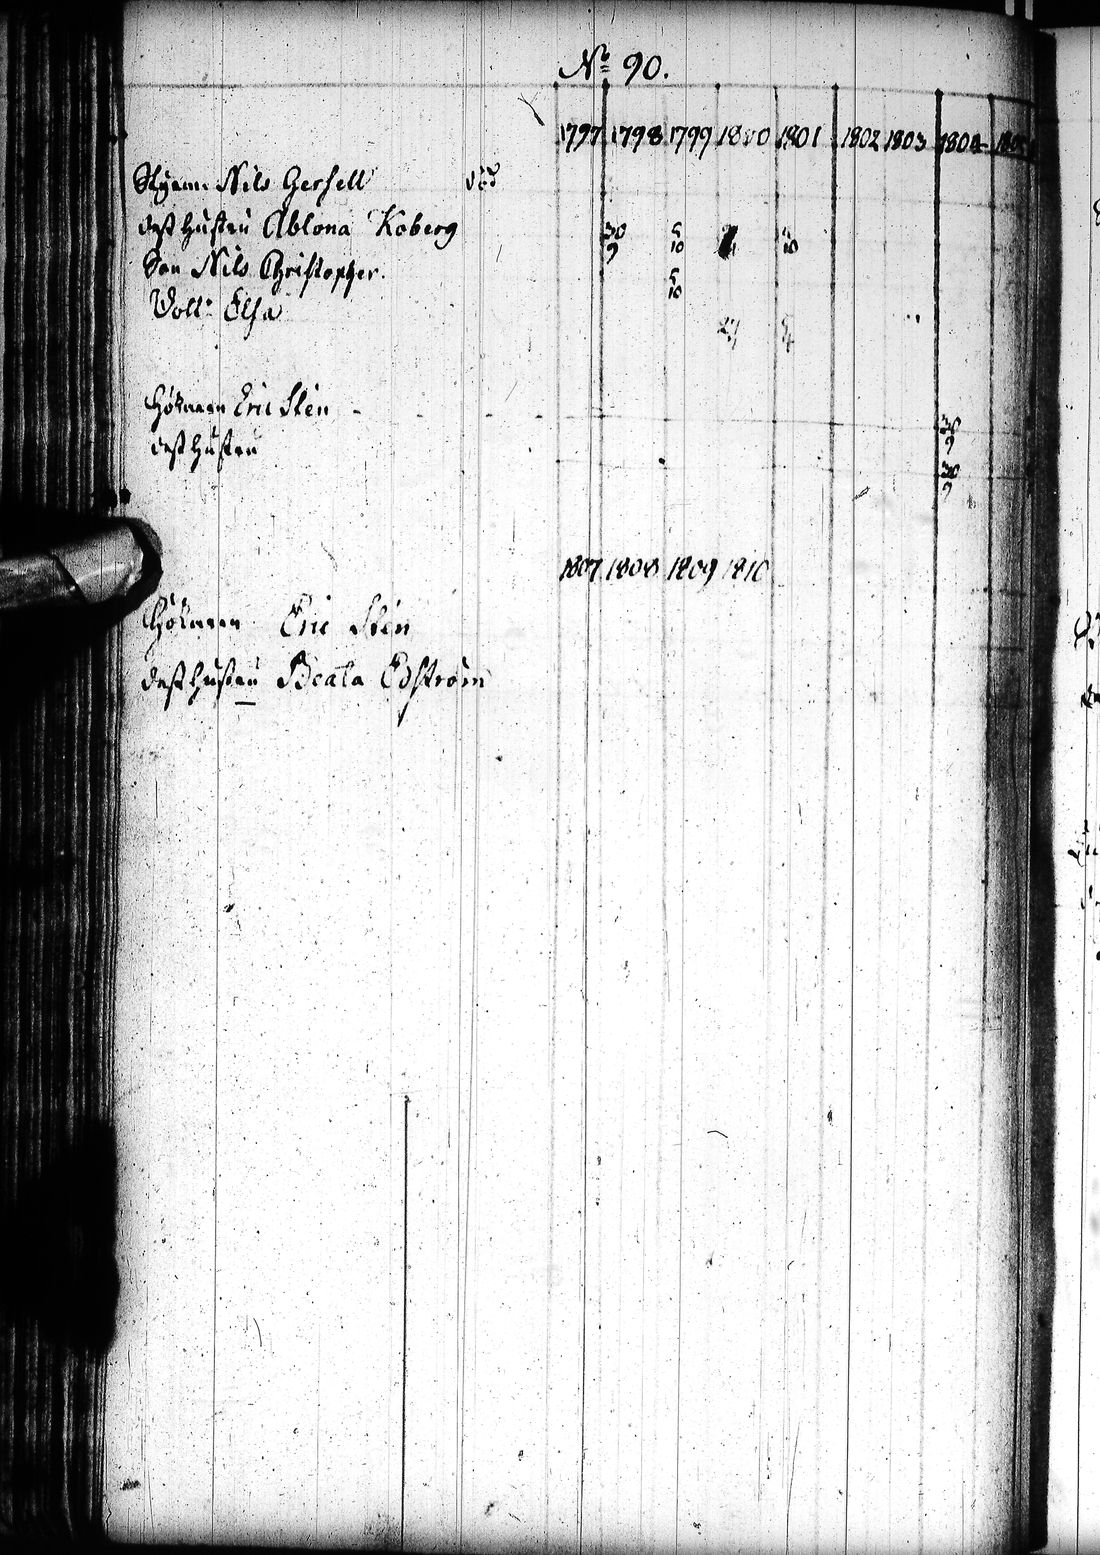 No 90.
1797 1798 1799 1800 1801 1802 1803 1804 1805
Styrm. Nils Gersell död
dess hustru Ablona Koberg 30/9 5/10
Son Nils Christopher. 5/10
Dottr Elsa
Hökaren Eric Sten
30/9
dess hustru
30/9
1807 1808 1809 1810
Hökaren Eric Sten
dess hustru Beata Edström